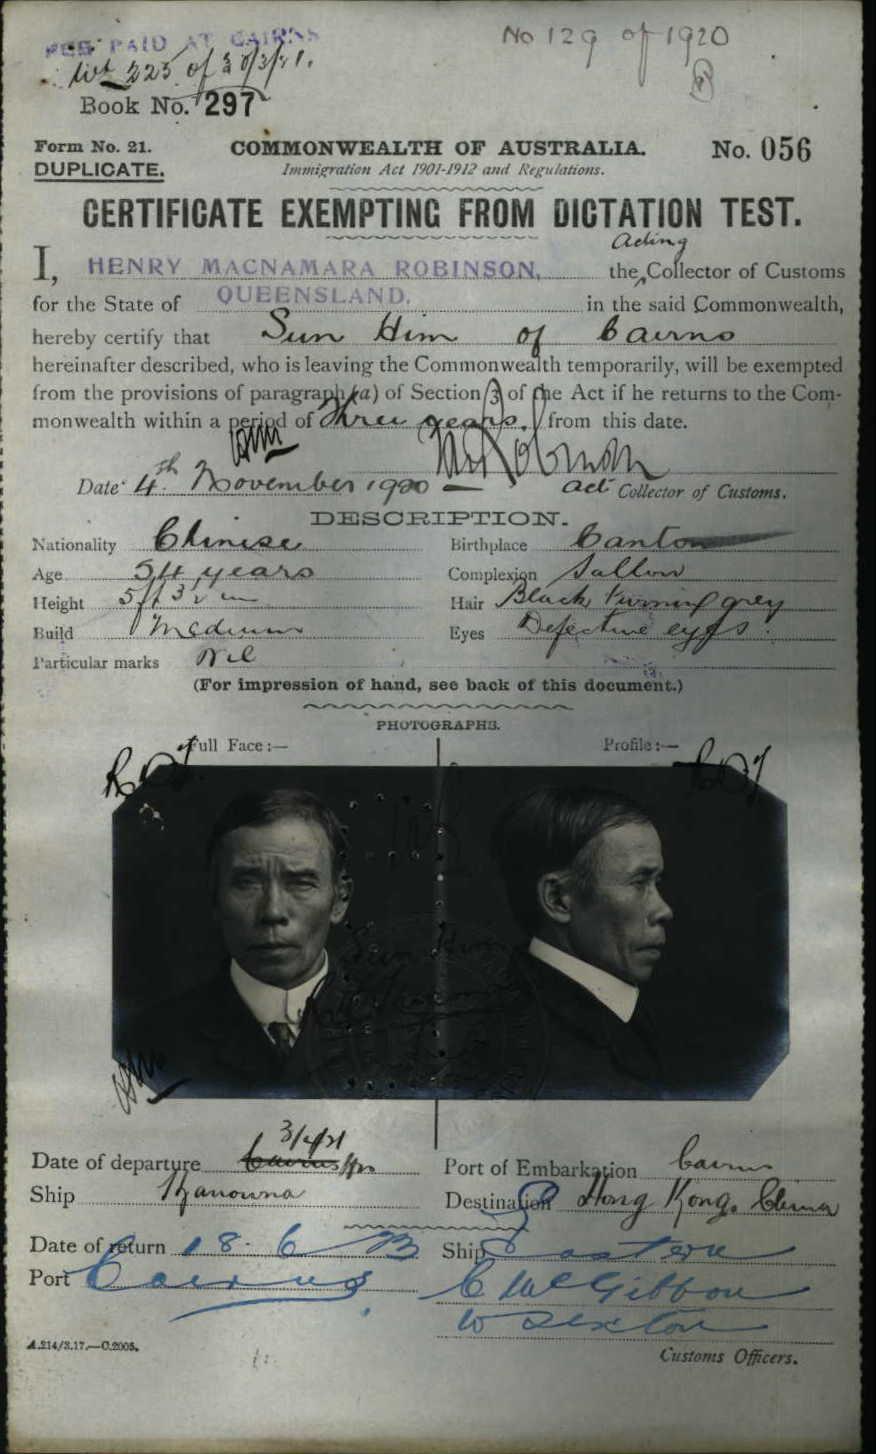 FEE PAID AT CAIRNS
No 129 of 1920
225 of 30/3/21.
Book No. 297
Form No. 21.
COMMONWEALTH OF AUSTRALIA.
No. 056
DUPLICATE.
Immigration Act 1901-1912 and Regulations.
CERTIFICATE EXEMPTING FROM DICTATION TEST.
Acting
I, HENRY MACNAMARA ROBINSON, the Collector of Customs
for the State of QUEENSLAND. in the said Commonwealth,
hereby certify that Sun Him of Cairns
hereinafter described, who is leaving the Commonwealth temporarily, will be exempted
from the provisions of paragraph (a) of Section 3 of the Act if he returns to the Com-
monwealth within a period of three years from this date.
Date 4th November 1920
Act Collector of Customs.
DESCRIPTION.
Nationality Chinese
Birthplace Canton
Age 54 years
Complexion Sallow
Height 5 ft 3
Hair Black turning grey
Build Medium
Eyes Defective eyes.
Particular marks Nil
(For impression of hand, see back of this document.)
PHOTOGRAPHS.
Full Face:—
Profile:—
Sun Him
3/4/21
Date of departure Cairns
Port of Embarkation Cairns
Ship Kanowna
Destination Hong Kong. China
Date of return 18. 6 23
Ship Eastern
Port Cairns
C McGibbon
W Sexton
A.214/3.17.—C.2005.
Customs Officers.